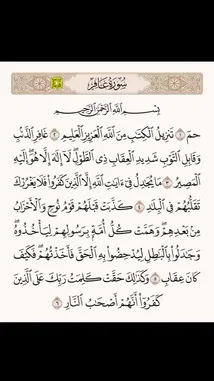 سُورَةُ غَافِرٍ
بِسْمِ اللَّهِ الرَّحْمَٰنِ الرَّحِيمِ
حمٓ ١ تَنزِيلُ الْكِتَٰبِ مِنَ اللَّهِ الْعَزِيزِ الْعَلِيمِ ٢ غَافِرِ الذَّنۢبِ
وَقَابِلِ التَّوْبِ شَدِيدِ الْعِقَابِ ذِي الطَّوْلِ لَآ إِلَٰهَ إِلَّا هُوَ إِلَيْهِ
الْمَصِيرُ ٣ مَا يُجَٰدِلُ فِيٓ ءَايَٰتِ اللَّهِ إِلَّا الَّذِينَ كَفَرُوا۟ فَلَا يَغْرُرْكَ
تَقَلُّبُهُمْ فِي الْبِلَٰدِ ٤ كَذَّبَتْ قَبْلَهُمْ قَوْمُ نُوحٍ وَالْأَحْزَابُ
مِنۢ بَعْدِهِمْ وَهَمَّتْ كُلُّ أُمَّةٍۭ بِرَسُولِهِمْ لِيَأْخُذُوهُ
وَجَٰدَلُوا۟ بِالْبَٰطِلِ لِيُدْحِضُوا۟ بِهِ الْحَقَّ فَأَخَذْتُهُمْ فَكَيْفَ
كَانَ عِقَابِ ٥ وَكَذَٰلِكَ حَقَّتْ كَلِمَتُ رَبِّكَ عَلَى الَّذِينَ
كَفَرُوٓا۟ أَنَّهُمْ أَصْحَٰبُ النَّارِ ٦